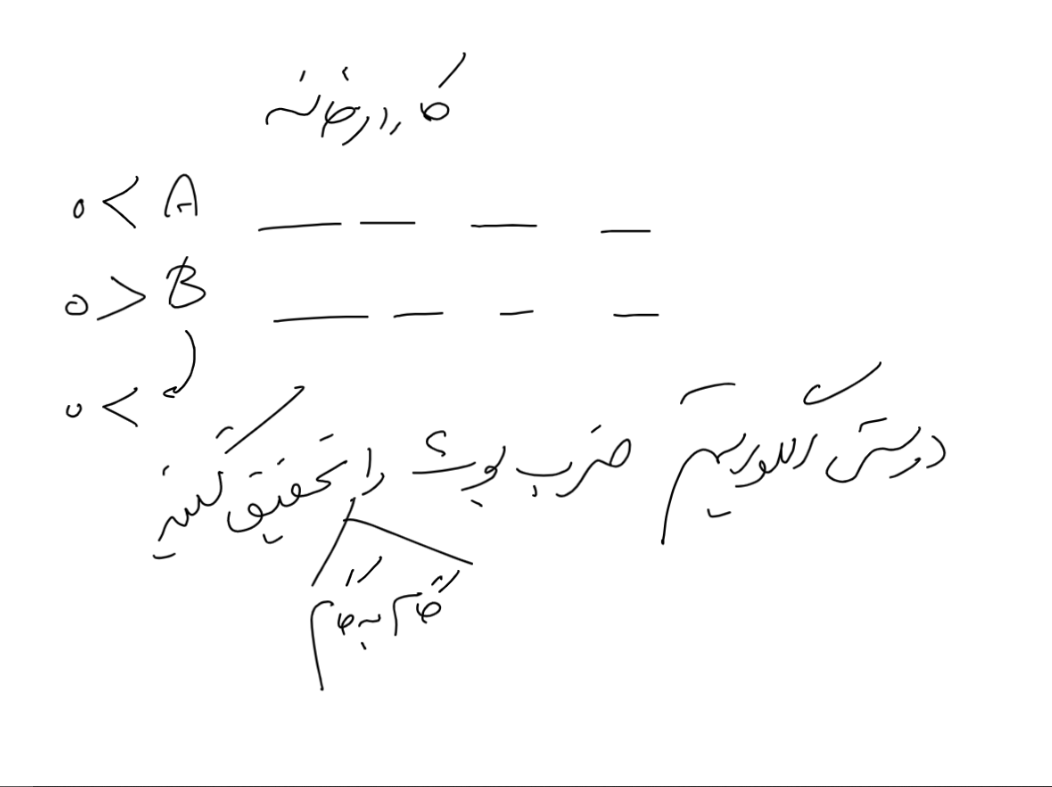 کار در خانه
0 < A _ _ _ _
0 > B _ _ _ _
0 <
دوستی الگوریتم ضرب بوث را تحقیق کنید
قدم به قدم